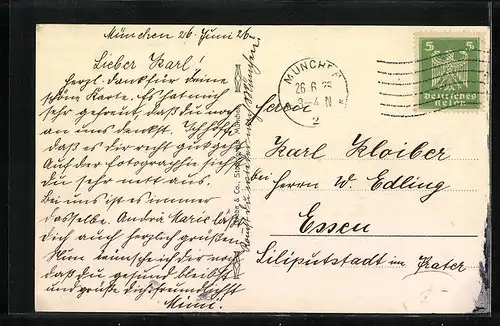 München 26. Juni 26.
Lieber Karl!
Herzl. Dank für deine
schöne Karte. Es hat mich
sehr gefreut, daß du noch
an uns denkst. Ich hoffe
daß es dir recht gut geht
Auf der Fotographie siehst
du sehr nett aus.
Bei uns ist es immer
dasselbe. André Marie läßt
dich auch herzlich grüßen.
daß du gesund bleibst
und grüße dich freundlichst
Mimi.
München
MÜNCHEN
26.6.26
3-4 N
2
5 5
Deutsches
Reich
Herrn
Karl Kloiber
bei Herrn W. Edling
Essen
Liliputstadt im Prater